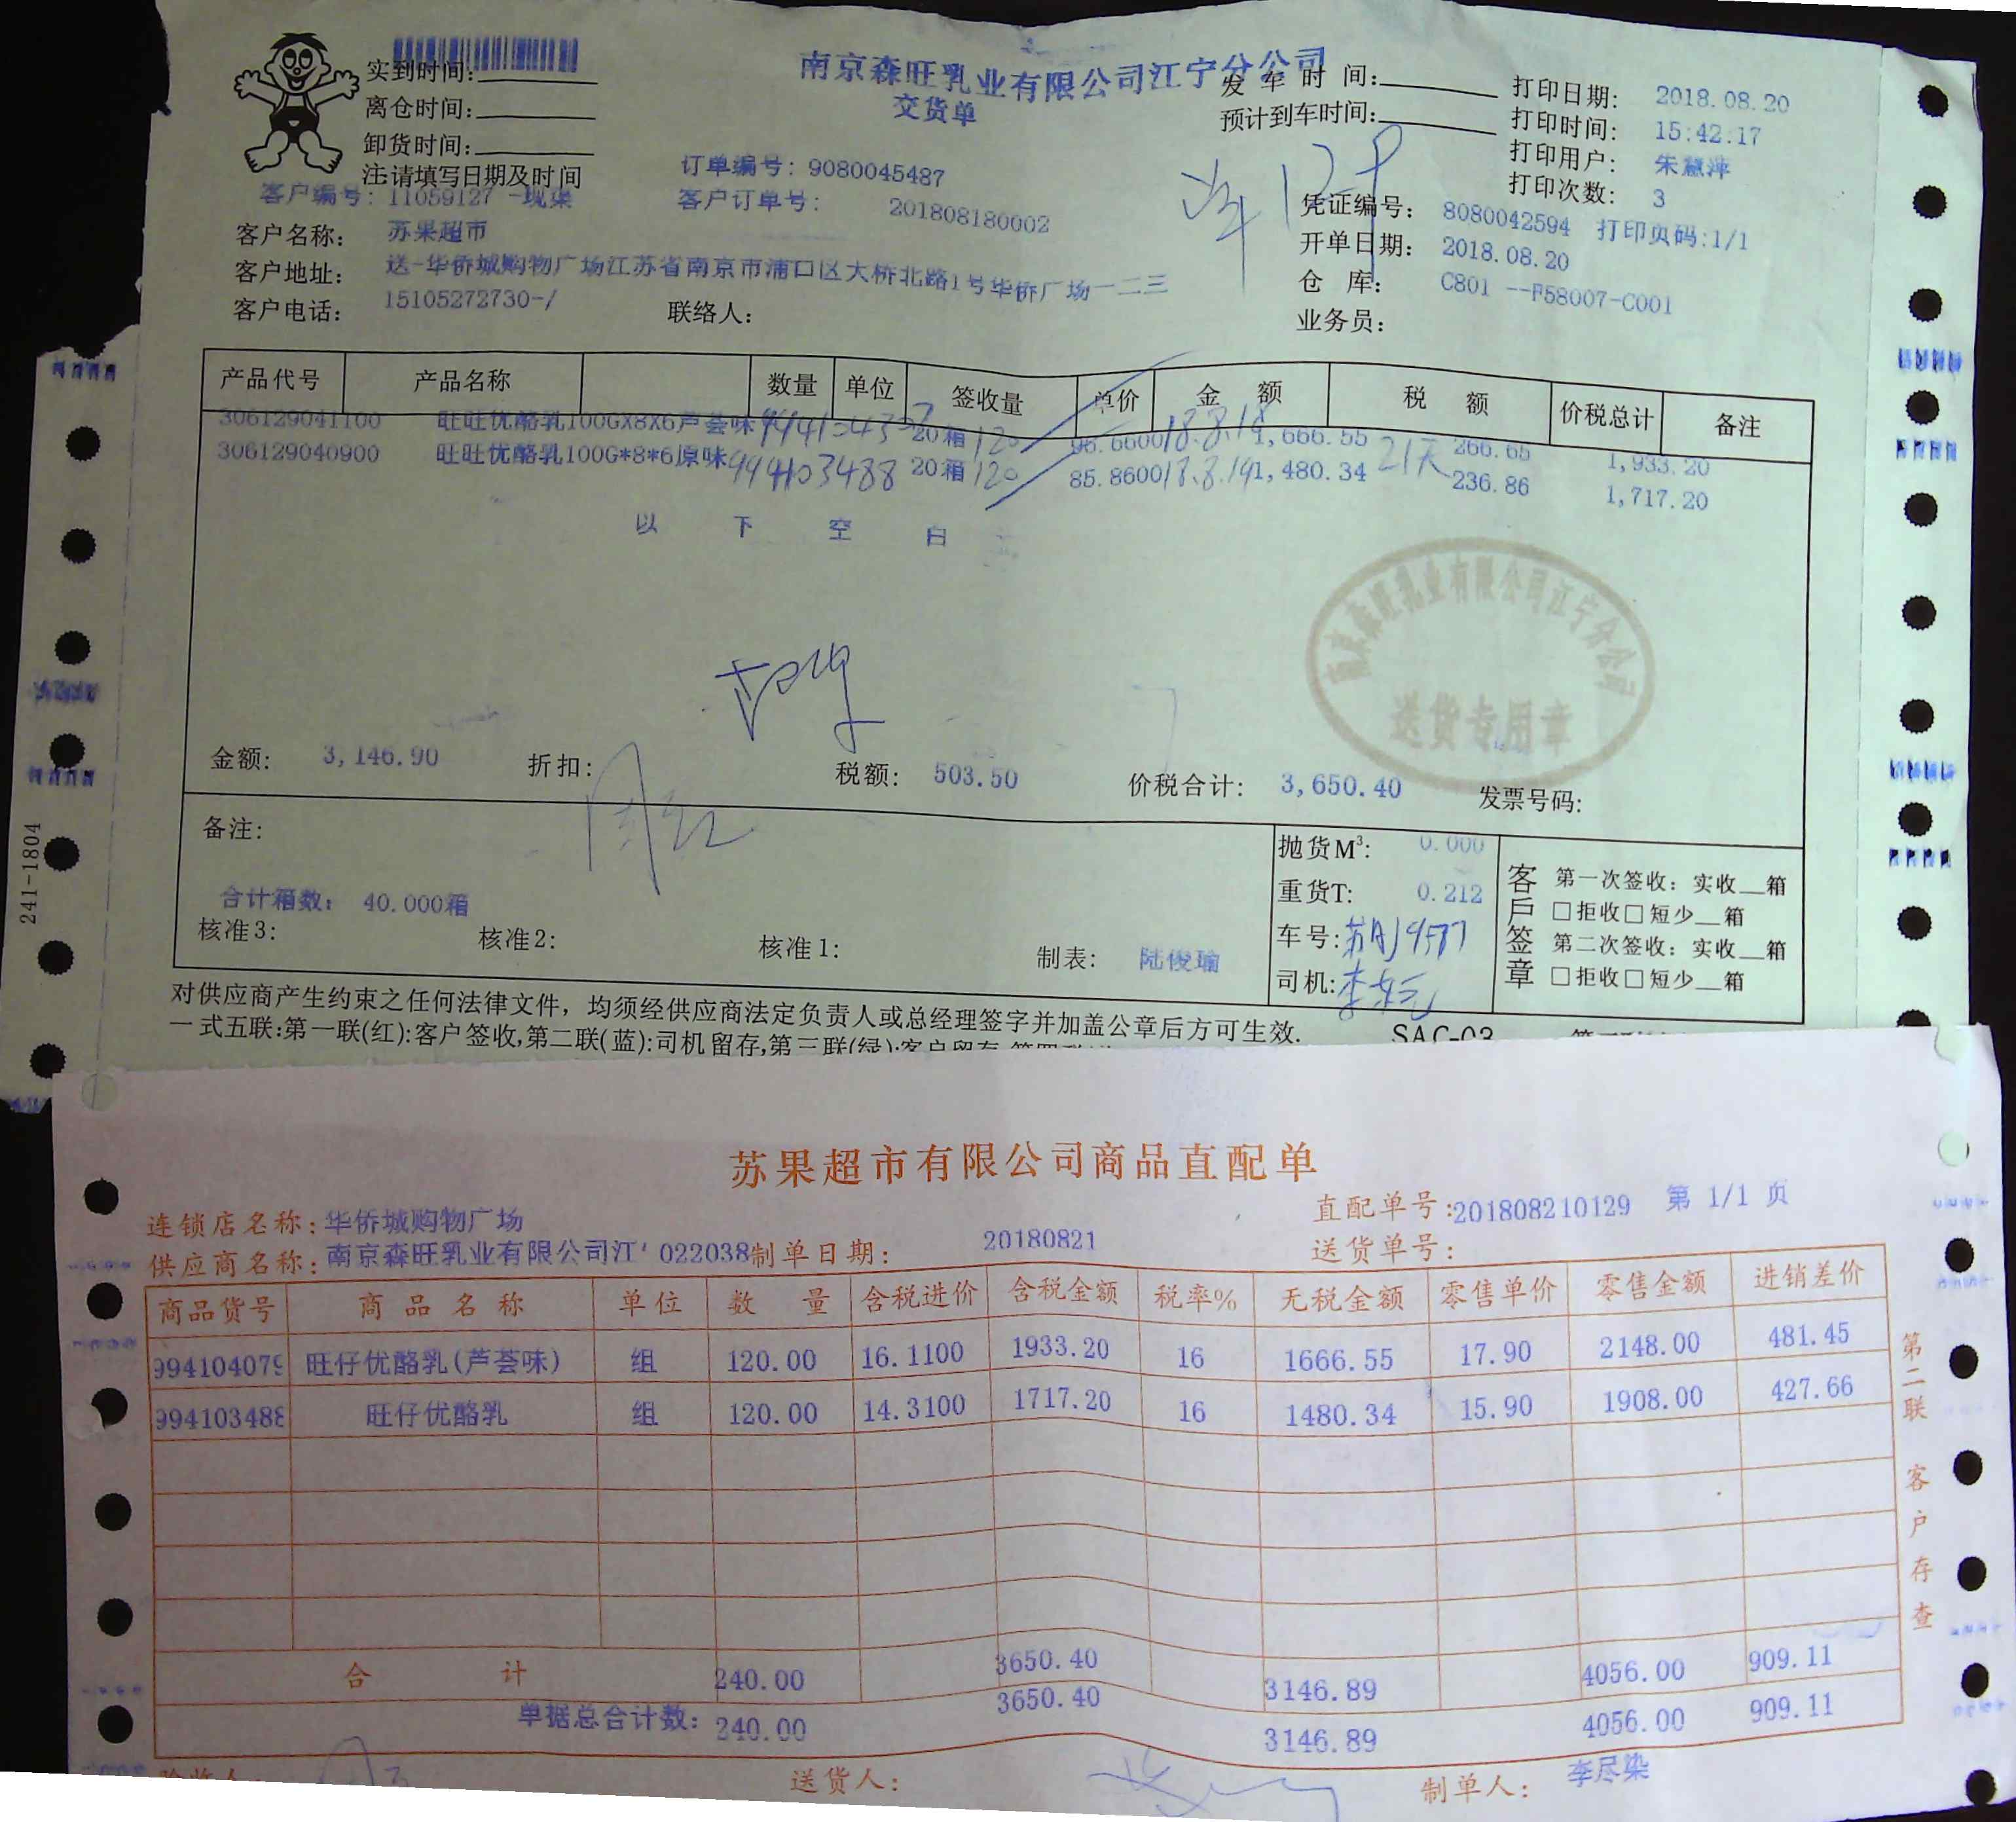 南京森旺乳业有限公司江宁分公司
交货单
实到时间:
离仓时间:
卸货时间:
注:请填写日期及时间
发 车 时 间:
预计到车时间:
打印日期: 2018.08.20
打印时间: 15:42.17
打印用户: 朱慧萍
打印次数: 3
订单编号: 9080045487
客户编号: 11059127 -现渠
客户订单号: 201808180002
凭证编号: 8080042594 打印页码:1/1
客户名称: 苏果超市
开单日期: 2018.08.20
客户地址: 送-华侨城购物广场江苏省南京市浦口区大桥北路1号华侨广场一二三
仓 库: C801 --F58007-C001
客户电话: 15105272730-/
联络人:
业务员:
产品代号 产品名称 数量 单位 签收量 单价 金 额 税 额 价税总计 备注
306129041100 旺旺优酪乳100GX8X6芦荟味 20箱 120 96.6600 18.8.19 1,666.55 266.65 1,933.20
306129040900 旺旺优酪乳100G*8*6原味 994103488 20箱 120 85.8600 18.8.19 1,480.34 21天 236.86 1,717.20
以 下 空 白
南京森旺乳业有限公司江宁分公司
送货专用章
金额: 3,146.90 折扣: 税额: 503.50 价税合计: 3,650.40 发票号码:
备注:
合计箱数: 40.000箱
核准3: 核准2: 核准1: 制表: 陆俊瑜
抛货M³: 0.000
重货T: 0.212
车号:
司机:
客戶签章
第一次签收: 实收__箱
□拒收□短少__箱
第二次签收: 实收__箱
□拒收□短少__箱
241-1804
对供应商产生约束之任何法律文件，均须经供应商法定负责人或总经理签字并加盖公章后方可生效.
一式五联:第一联(红):客户签收,第二联(蓝):司机留存,第三联(绿):客户留存
SAC-03
苏果超市有限公司商品直配单
连锁店名称: 华侨城购物广场
直配单号:201808210129 第 1/1 页
供应商名称: 南京森旺乳业有限公司江' 022038 制单日期: 20180821
送货单号:
商品货号 商品名称 单位 数 量 含税进价 含税金额 税率% 无税金额 零售单价 零售金额 进销差价
994104079 旺仔优酪乳(芦荟味) 组 120.00 16.1100 1933.20 16 1666.55 17.90 2148.00 481.45
994103488 旺仔优酪乳 组 120.00 14.3100 1717.20 16 1480.34 15.90 1908.00 427.66
合 计 240.00 3650.40 3146.89 4056.00 909.11
单据总合计数: 240.00 3650.40 3146.89 4056.00 909.11
第二联 客户存查
送货人:
制单人: 李尽染